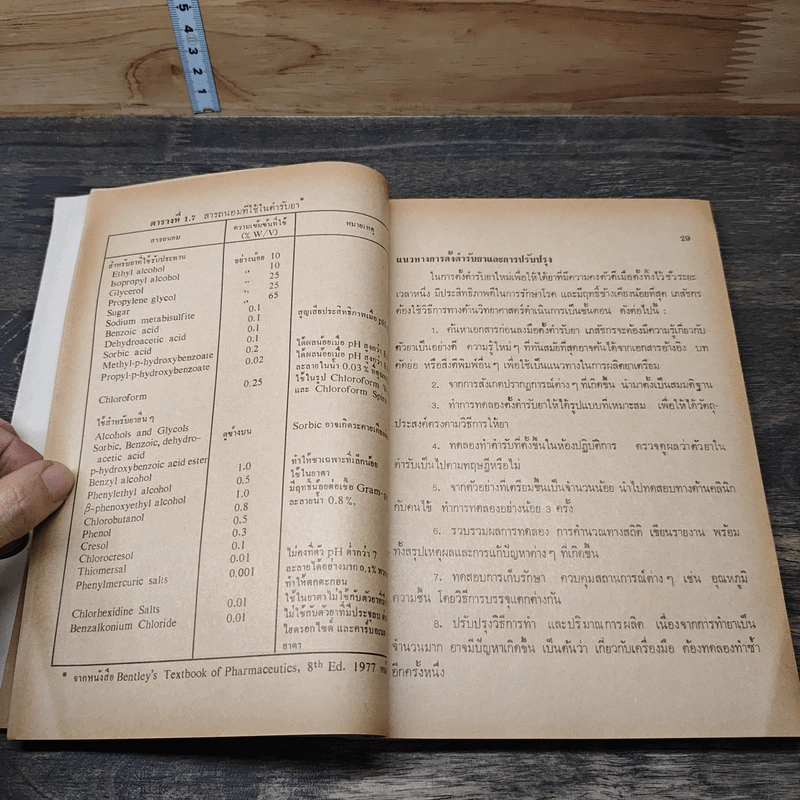 5 4 3 2 1
ตารางที่ 1.7 สารถนอมที่ใช้ในตำรับยา*
สารถนอม ความเข้มข้นที่ใช้ (% W/V) หมายเหตุ
สำหรับยาที่ใช้รับประทาน
Ethyl alcohol อย่างน้อย 10
Isopropyl alcohol " 10
Glycerol " 25
Propylene glycol " 25
Sugar " 65
Sodium metabisulfite 0.1 สูญเสียประสิทธิภาพเมื่อ pH
Benzoic acid 0.1
Dehydroacetic acid 0.1
Sorbic acid 0.1 ได้ผลน้อยเมื่อ pH สูงกว่า
Methyl-p-hydroxybenzoate 0.2 ได้ผลน้อยเมื่อ pH สูงกว่า
Propyl-p-hydroxybenzoate 0.02 ละลายในน้ำ 0.03 %
Chloroform 0.25 ใช้ในรูป Chloroform
และ Chloroform
ใช้สำหรับยาอื่น ๆ
Alcohols and Glycols ดูข้างบน
Sorbic, Benzoic, dehydro- Sorbic อาจเกิดระคายเคือง
acetic acid
p-hydroxybenzoic acid ester
Benzyl alcohol 1.0 ทำให้ชาเฉพาะที่เล็กน้อย
Phenylethyl alcohol 0.5 ใช้ในยาตา
β-phenoxyethyl alcohol 1.0 มีฤทธิ์น้อยต่อเชื้อ Gram-
Chlorobutanol 0.8 ละลายน้ำ 0.8%,
Phenol 0.5
Cresol 0.3
Chlorocresol 0.1
Thiomersal 0.01 ไม่คงที่ตัว pH ต่ำกว่า 7
Phenylmercuric salts 0.001 ละลายได้อย่างมาก 0.1%
ทำให้ตกตะกอน
Chlorbexidine Salts 0.01 ใช้ในยาตาไม่ใช้กับตัวยาที่
Benzalkonium Chloride 0.01 ไม่ใช้กับตัวยาที่มีประจุลบ
ไฮดรอกไซด์ และคาร์บอเนต
ยาตา
* จากหนังสือ Bentley's Textbook of Pharmaceutics, 8th Ed. 1977
29
แนวทางการตั้งตำรับยาและการปรับปรุง
ในการตั้งตำรับยาใหม่เพื่อให้ได้ยาที่มีความคงตัวดีเมื่อตั้งทิ้งไว้ ชั่วระยะ
เวลาหนึ่ง มีประสิทธิภาพดีในการรักษาโรค และมีฤทธิ์ข้างเคียงน้อยที่สุด เภสัชกร
ต้องใช้วิธีการทางด้านวิทยาศาสตร์ดำเนินการเป็นขั้นตอน ดังต่อไปนี้ :
1. ค้นหาเอกสารก่อนลงมือตั้งตำรับยา เภสัชกรจะต้องมีความรู้เกี่ยวกับ
ตัวยาเป็นอย่างดี ความรู้ใหม่ๆ ที่ทันสมัยที่สุดอาจค้นได้จากเอกสารอ้างอิง บท
คัดย่อ หรือสิ่งตีพิมพ์อื่นๆ เพื่อใช้เป็นแนวทางในการผลิตยาเตรียม
2. จากการสังเกตปรากฏการณ์ต่างๆ ที่เกิดขึ้น นำมาตั้งเป็นสมมติฐาน
3. ทำการทดลองตั้งตำรับยาให้ได้รูปแบบที่เหมาะสม เพื่อให้ได้วัตถุ-
ประสงค์ตรงตามวิธีการให้ยา
4. ทดลองทำตำรับที่ตั้งขึ้นในห้องปฏิบัติการ ตรวจดูผลว่าตัวยาใน
ตำรับเป็นไปตามทฤษฎีหรือไม่
5. จากตัวอย่างที่เตรียมขึ้นเป็นจำนวนน้อย นำไปทดสอบทางด้านคลินิก
กับคนไข้ ทำการทดลองอย่างน้อย 3 ครั้ง
6. รวบรวมผลการทดลอง การคำนวณทางสถิติ เขียนรายงาน พร้อม
ทั้งสรุปเหตุผลและการแก้ปัญหาต่างๆ ที่เกิดขึ้น
7. ทดสอบการเก็บรักษา ควบคุมสถานการณ์ต่างๆ เช่น อุณหภูมิ
ความชื้น โดยวิธีการบรรจุแตกต่างกัน
8. ปรับปรุงวิธีการทำ และปริมาณการผลิต เนื่องจากการทำยาเป็น
จำนวนมาก อาจมีปัญหาเกิดขึ้น เป็นต้นว่า เกี่ยวกับเครื่องมือ ต้องทดลองทำซ้ำ
อีกครั้งหนึ่ง